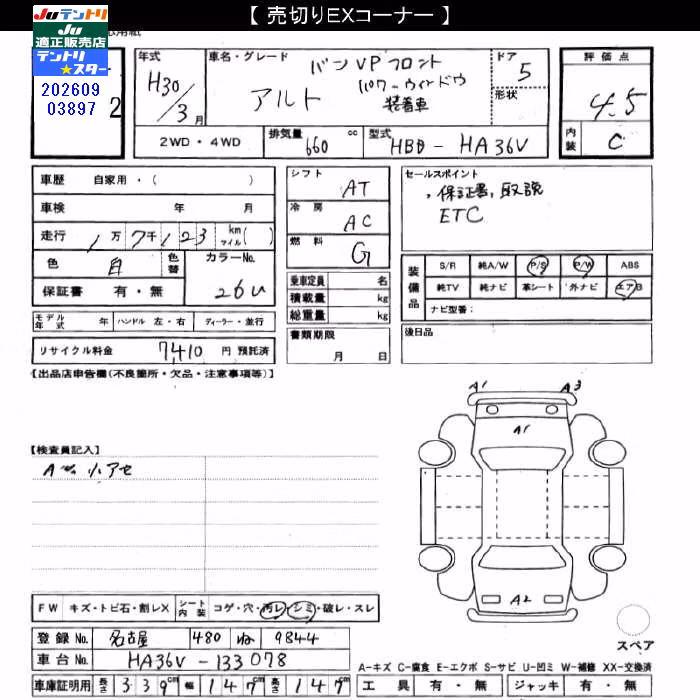 【 売切りEXコーナー 】
Ju テントリ
Ju
適正販売店
テントリ
★スター
202609
03897
2
年式
H30/3月
車名・グレード
バンVPフロント
アルト パワーウィンドウ
装着車
ドア
5
形状
評価点
4.5
内装
C
2WD・4WD
排気量
660 cc
型式
HBD-HA36V
車歴 自家用・( )
車検 年 月
走行 1万7千123 km マイル( )
色 白 色替
カラーNo.
26U
保証書 有・無
モデル年式 年 ハンドル 左・右 ディーラー・並行
リサイクル料金 7410 円 預託済
シフト
AT
冷房
AC
燃料
G
乗車定員 名
積載量 kg
総重量 kg
書類期限
月 日
セールスポイント
、保証書、取説
ETC
装備品
S/R 純A/W P/S P/W ABS
純TV 純ナビ 革シート 外ナビ エアB
ナビ型番:
後日品
【出品店申告欄(不良箇所・欠品・注意事項等)】
【検査員記入】
A1 A3
A1
A2
スペア
FW キズ・トビ石・割レX シート内装 コゲ・穴・汚レ・シミ・破レ・スレ
登録No. 名古屋 480 ね 9844
車台No. HA36V-133078
車庫証明用 長さ 339cm 幅 147cm 高さ 147cm
A-キズ C-腐食 E-エクボ S-サビ U-凹ミ W-補修 XX-交換済
工具 有・無 ジャッキ 有・無